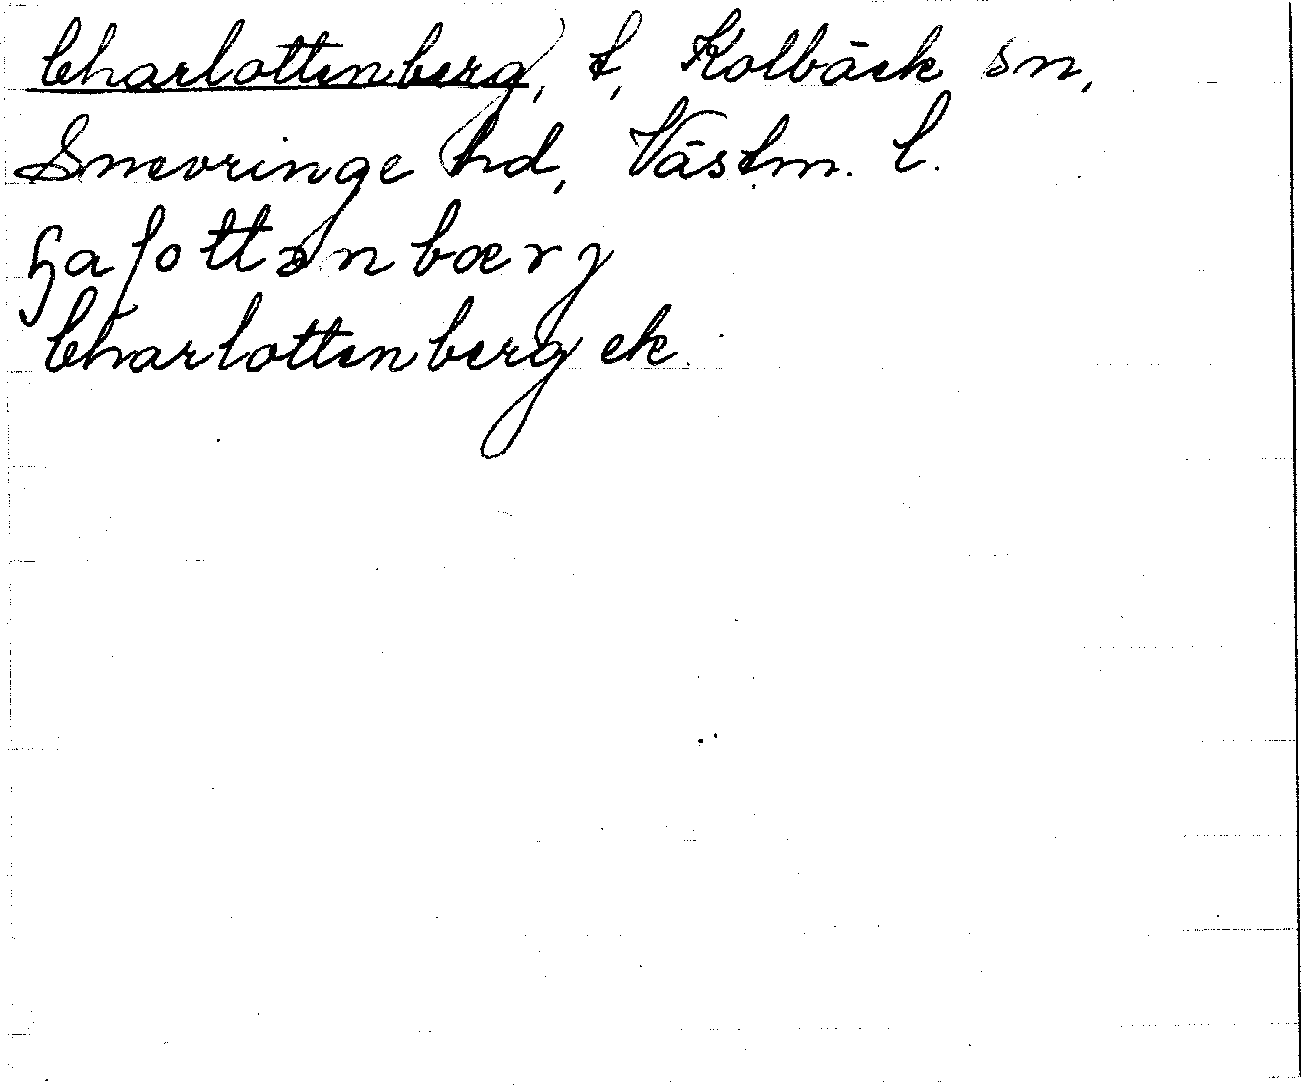 Charlottenberg, t, Kolbäck sn,
Snevringe hd, Västm. l.
ɧaɭottənbærj
Charlottenberg ek.